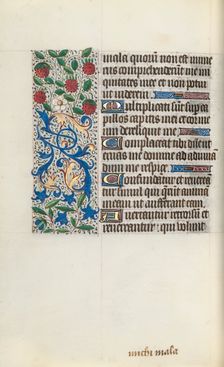 mala quorū non est nume
rus comprehenderūt me ini
quitates mee et non potui
ut viderem
Multiplicati sūt sup ca
pillos capitis mei et cor me
um dereliquit me
Complaceat tibi dñe ut
eruas me domine ad adiuvā
dum me respice
Confundātur et revereā
tur simul qui querūt animā
meam ut auferant eam
Avertantur retrorsū et
revereantur qui volunt
michi mala